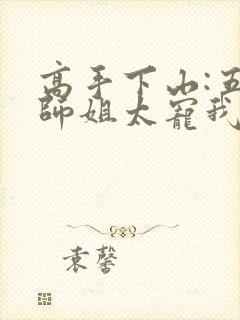 高手下山:五
师姐太宠我
袁馨